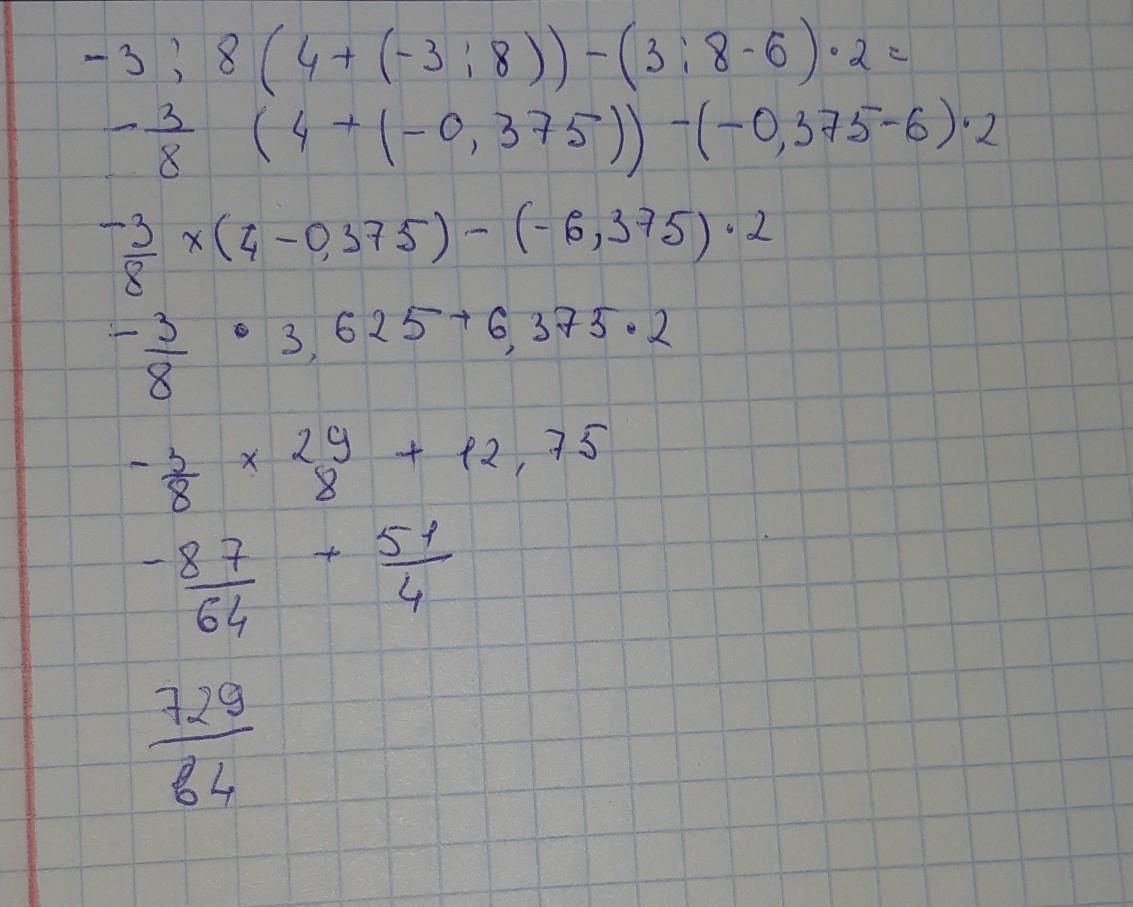 -3 : 8 (4 + (-3 : 8)) - (3 : 8 - 6) · 2 =
-3/8 (4 + (-0,375)) - (-0,375-6) · 2
-3/8 × (4 - 0,375) - (-6,375) · 2
-3/8 · 3,625 + 6,375 · 2
-3/8 × 29/8 + 12,75
-87/64 + 51/4
729/64